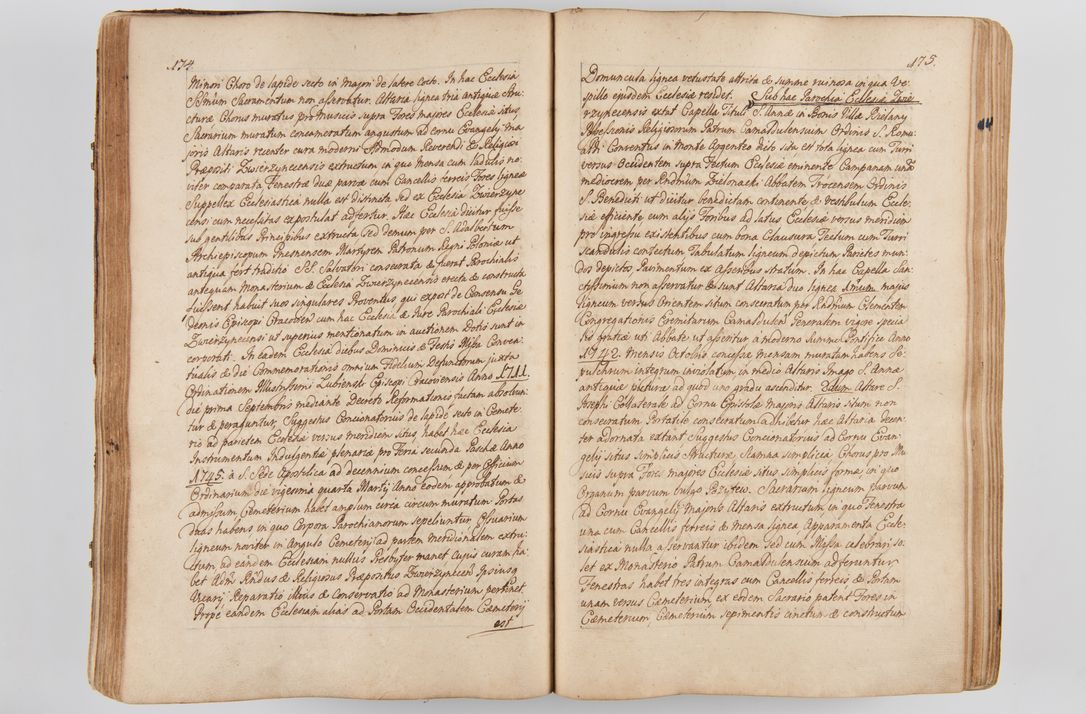 174.
Minori Choro de lapide secto in majori de latere cocto. In hac Ecclesia
SSmum Sacramentum non asservatur. Altaria lignea tria antiquæ stru-
cturæ Chorus muratus pro musicis supra Fores majores Ecclesiæ situs
Sacrarium muratum concameratum angustum ad Cornu Evangelij ma-
joris Altaris recenter cura moderni Admodum Reverendi & Religiosi
Præpositi Zwierzynecensis extructum in quo Mensa cum ladulis no-
viter comparata Fenestræ duæ parvæ cum Cancellis ferreis Fores ligneæ
Suppellex Ecclesiastica nulla est distincta sed ex Ecclesia Zwierzyne
censi cum necessitas expostulat adfertur. Hæc Ecclesia dicitur fuisse
sub gentilibus Principibus extructa sed demum per S. Adalbertum
Archiepiscopum Gnesnensem Martyrem Patronum Regni Poloniæ ut
antiqua fert traditio SS. Salvatori consecrata & fuerat Parochialis
antequam Monasterium & Ecclesia Zwierzynecensis erecta & constructa
fuissent habuit suos singulares Proventus qui expost de Consensu Ge-
deonis Episcopi Cracoven. cum hac Ecclesia & Jure Parochiali Ecclesiæ
Zwierzynecensi ut superius mentionatum in auctionem Dotis sunt in
corporati. In eadem Ecclesia diebus Dominicis & Festis Missæ Conven-
tualis & die Commemorationis omnium Fidelium Defunctorum juxta
Ordinationem Illustrissimi Lubienski Episcopi Cracoviensis Anno 1711
die prima Septembris mediante Decreto Reformationis factam absolvun-
tur & peraguntur. Suggestus Concionatorius de lapide secto in Cemete-
rio ad parietem Ecclesiæ versus meridiem situs, habet hæc Ecclesia
Instrumentum Indulgentiæ plenariæ pro Feria secunda Paschæ Anno
1745. à S. Sede Apostolica ad decennium concessum & per Officium
Ordinarium die vigesima quarta Martij Anno eodem approbatum &
admissum Cemeterium habet amplum circa circum muratum Portas
duas habens in quo Corpora Parochianorum sepeliuntur Ossuarium
ligneum noviter in Angulo Cemeterij ad partem meridionalem extru-
ctum ad eandem Ecclesiam nullus Presbyter manet Cujus curam ha-
bet Adm Rndus & Religiosus Præpositus Zwierzynecen Ipsiusq
Vicarij Reparatio illius & Conservatio ad Monasterium pertinet.
Prope eandem Ecclesiam alias ad Portam Occidentalem Cæmeterij
est
175.
Domuncula lignea vetustate attrita & summe ruinosa in qua Ve-
spillo ejusdem Ecclesiæ residet. Sub hac Parochia Ecclesiæ Zwie-
rzynecensis extat Capella Tituli S. Annæ in Bonis Villæ Bielany
Possessionis Religiosorum Patrum Camaldulensium Ordinis S. Romu-
aldi Conventus in Monte Argenteo dicto sita est tota lignea cum Turri
versus Occidentem supra Tectum Ecclesiæ eminente Campanam unam
mediocrem per Rndmum Zielnacki Abbatem Trocensem Ordinis
S. Benedicti ut dicitur benedictam continente & vestibulum Eccle-
siæ efficiente cum alijs Foribus ad latus Ecclesiæ versus meridiem
pro ingressu existentibus cum bona Clausura Tectum cum Turri
scandulis contectum Tabulatum ligneum depictum Parietes mun-
dos depictos Pavimentum ex asseribus stratum. In hac Capella San-
ctissimum non asservatur & sunt Altaria duo lignea Primum majus
ligneum versus Orientem situm consecratum per Rndmum Clementem
Congregationis Eremitarum Camaldulen. Generalem vigore specia
lis gratiæ uti Abbate ut asseritur a moderno Summo Pontifice Anno
1742. mensis Octobris concessæ mensam muratam habens Se-
pulchrum integrum inviolatum in medio Altaris Imago S. Annæ
antiquæ picturæ ad quod uno gradu ascenditur. 2dum Altare S.
Josephi Collaterale ad Cornu Epistolæ majoris Altaris situm non
consecratum Portatile consecratum adhibetur hæc Altaria decen-
ter adornata extant Suggestus Concionatorius ad Cornu Evan-
gelij situs Simplicis Structuræ Scamna simplicia Chorus pro Mu-
sicis supra Fores majores Ecclesiæ situs Simplicis formæ in quo
Organum parvum vulgo Pozytew. Sacrarium ligneum parvum
ad Cornu Evangelij majoris Altaris extructum in quo Fenestra
una cum Cancellis ferreis & Mensa lignea Apparamenta Eccle-
siastica nulla asservantur ibidem sed cum Missa celebrari so-
let ex Monasterio Patrum Camaldulensium adferuntur
Fenestras habet tres integras cum Cancellis ferreis & Portam
unam versus Cæmeterium ex eodem Sacrario patent Fores in
Cæmeterium, Cæmeterium sepimentis cinctum & constructum